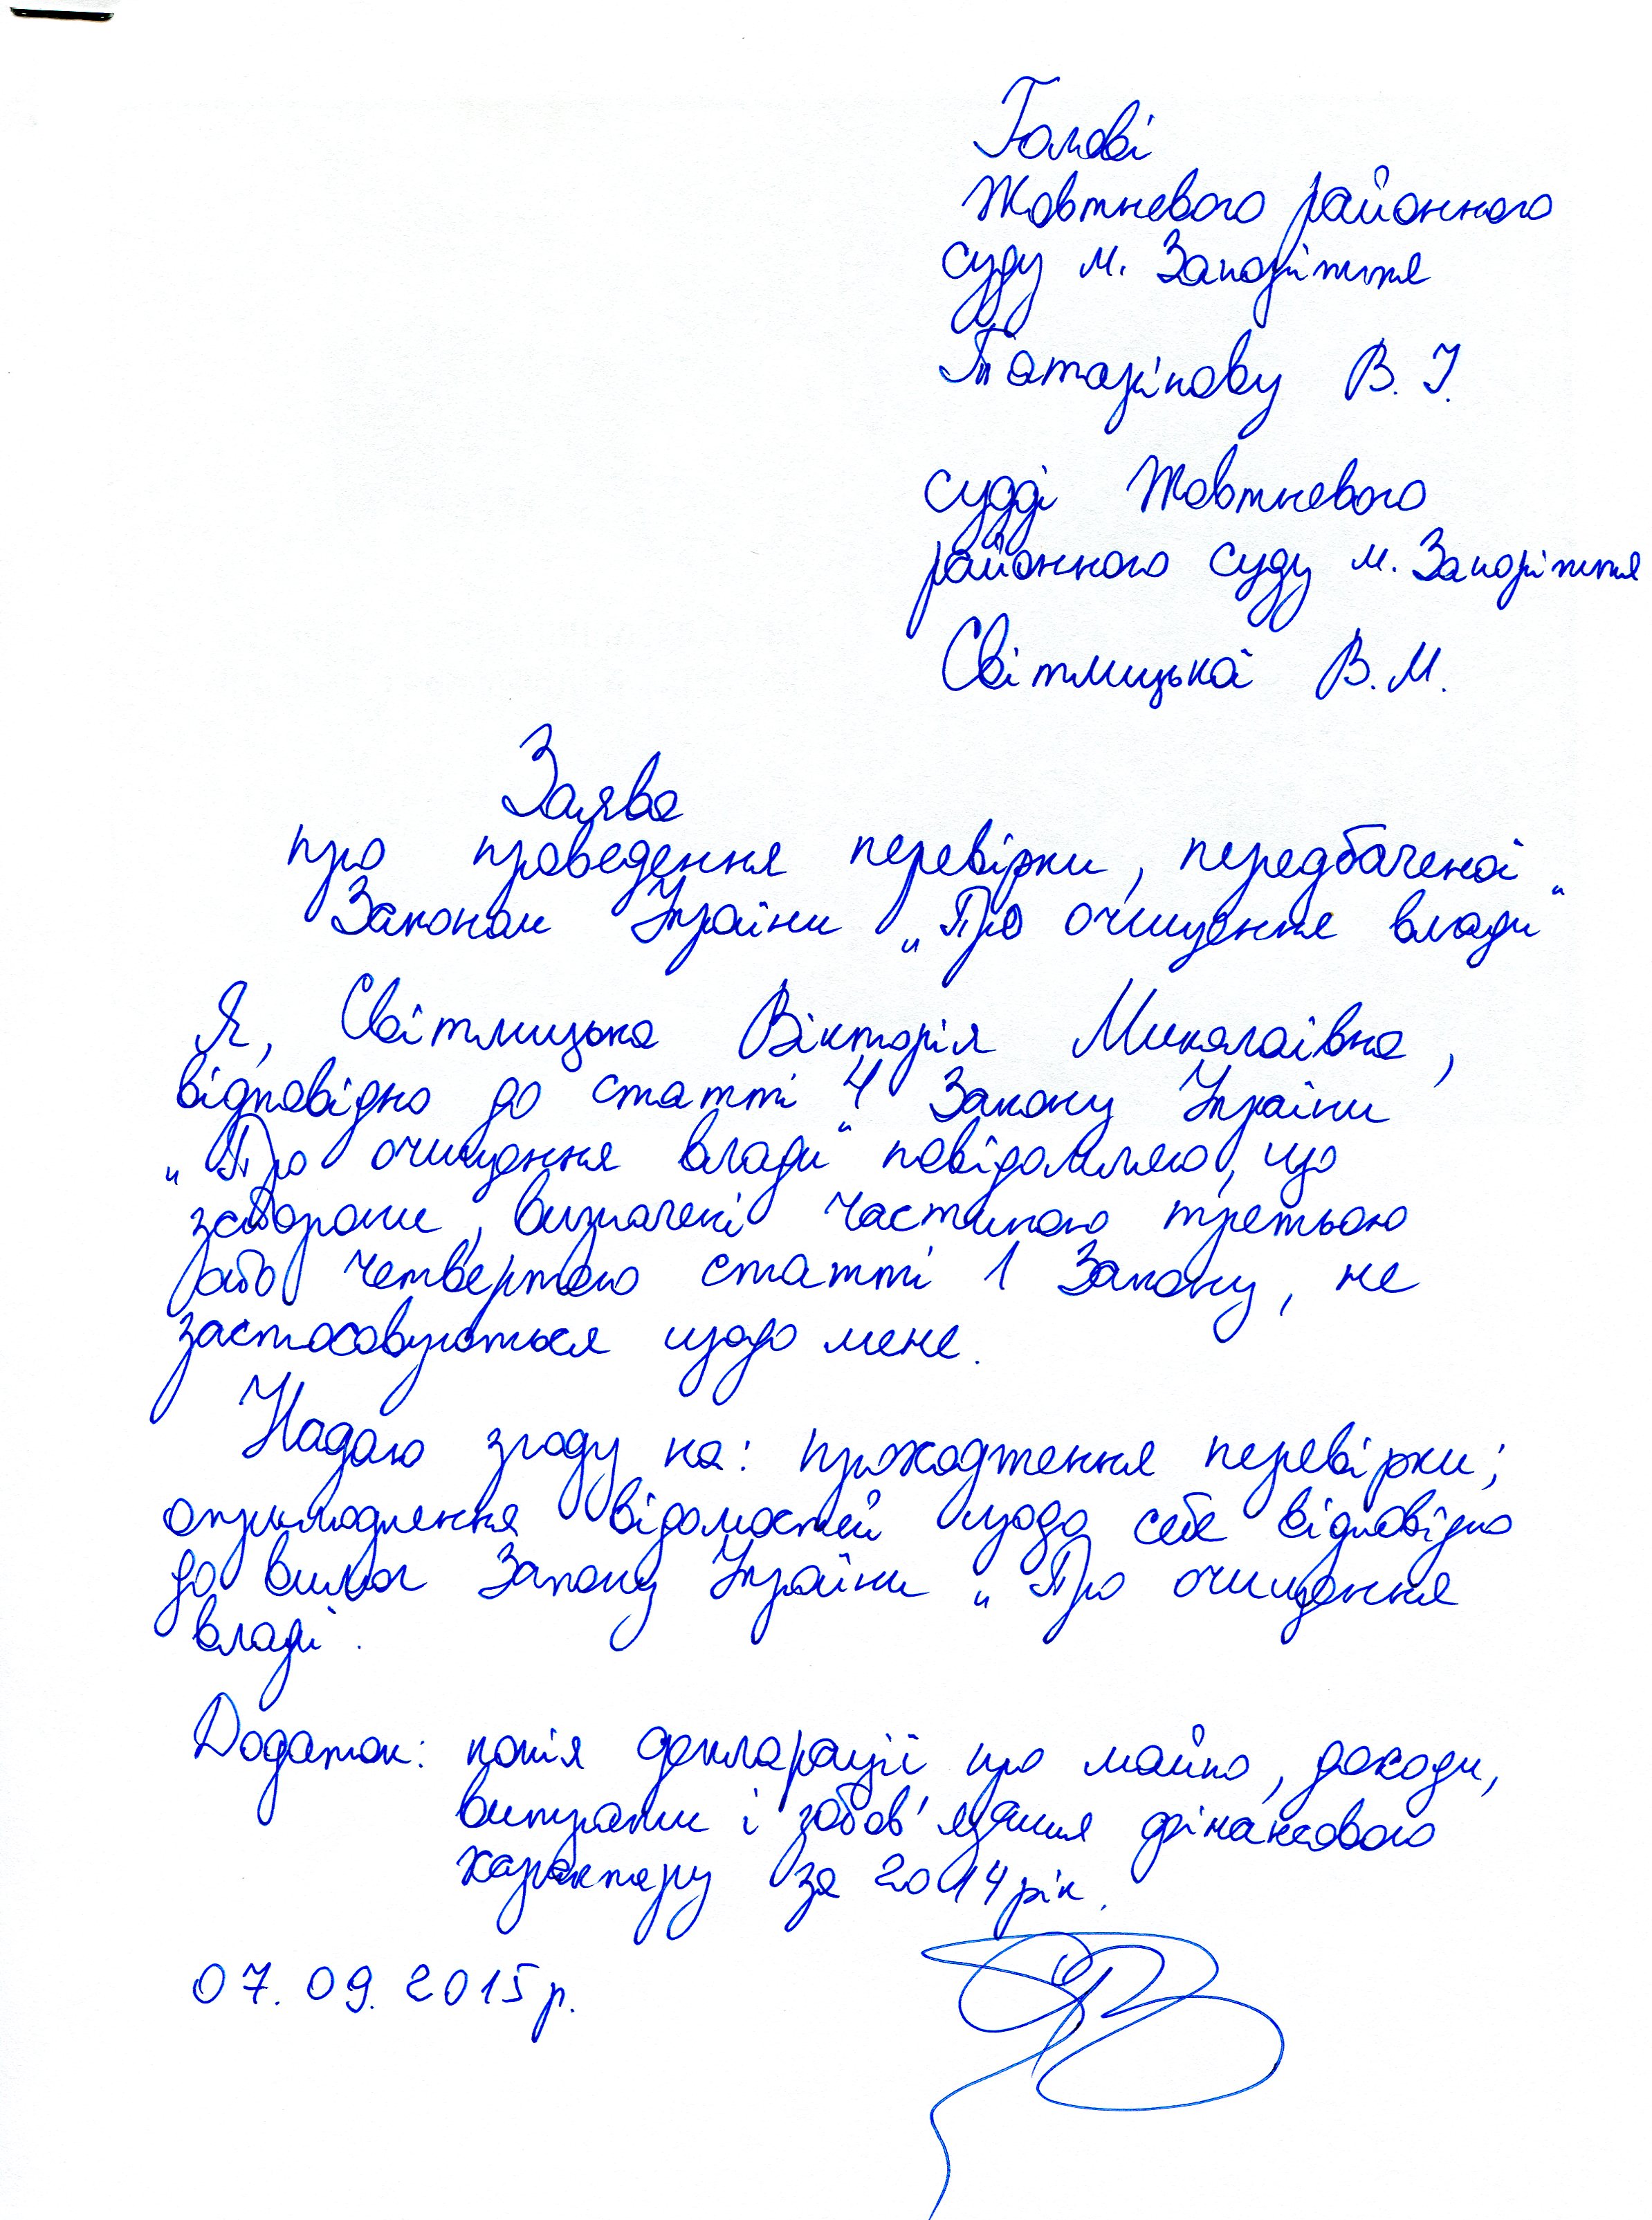 Голові
Жовтневого районного
суду м. Запоріжжя
Татарінову В. І.
судді Жовтневого
районного суду м. Запоріжжя
Світлицької В. М.
Заява
про проведення перевірки, передбаченої
Законом України „Про очищення влади“
Я, Світлицька Вікторія Миколаївна,
відповідно до статті 4 Закону України
„Про очищення влади“ повідомляю, що
заборони, визначені частиною третьою
або четвертою статті 1 Закону, не
застосовуються щодо мене.
Надаю згоду на: проходження перевірки;
оприлюднення відомостей щодо себе відповідно
до вимог Закону України „Про очищення
владі“.
Додаток: копія декларації про майно, доходи,
витрати і зобов'язання фінансового
характеру за 2014 рік.
07.09.2015 р.